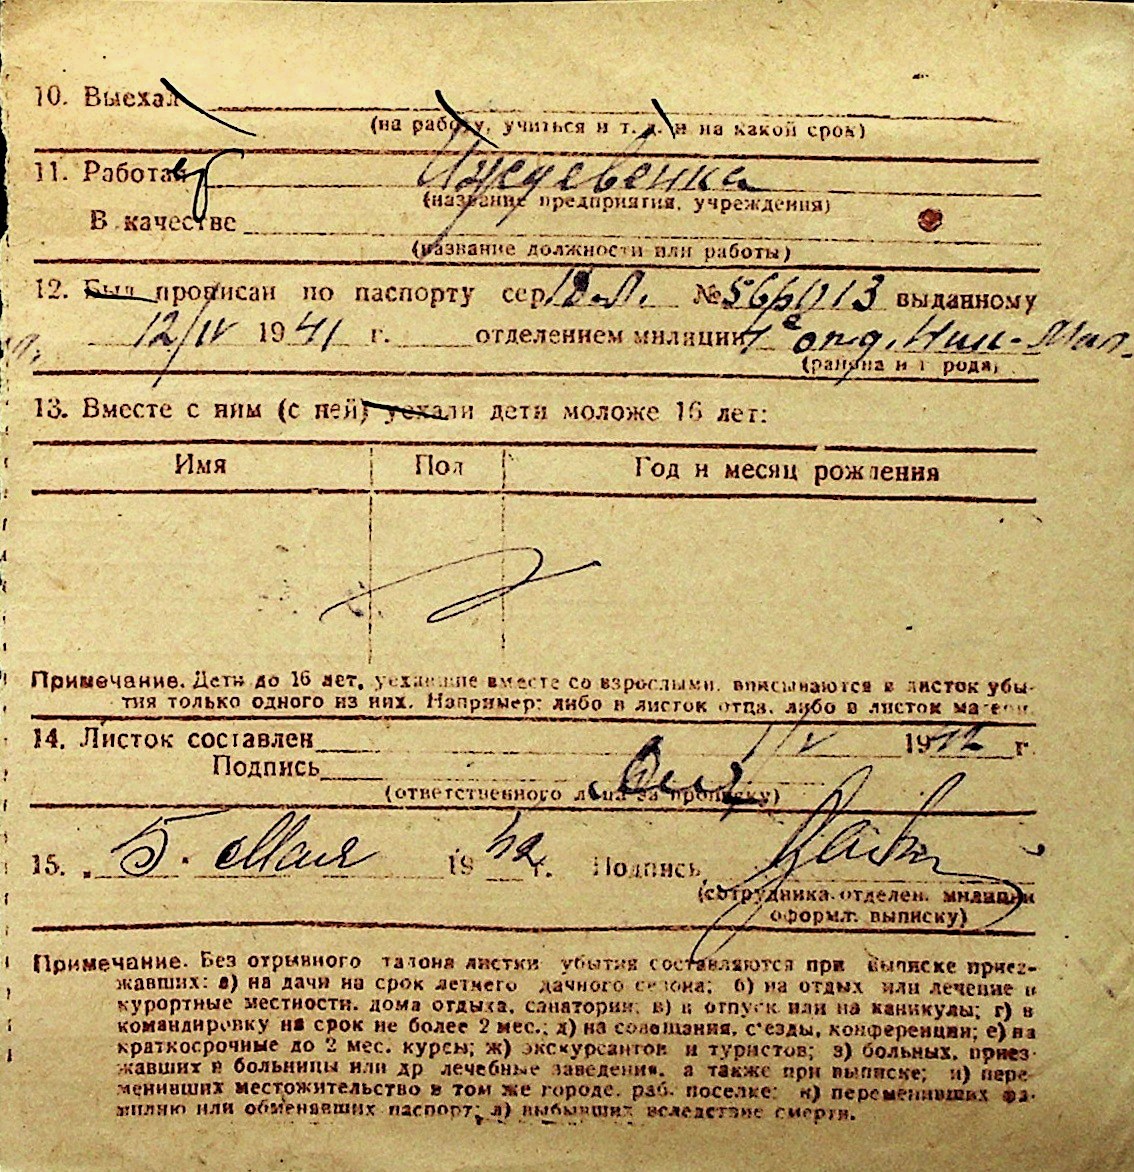 10. Выехал
(на работу, учиться и т. д. и на какой срок)
11. Работал Иждевенка
(название предприятия, учреждения)
В качестве
(название должности или работы)
12. Был прописан по паспорту сер. № 566013 выданному
12/IV 1941 г. отделением милиции
(района и города)
13. Вместе с ним (с ней) уехали дети моложе 16 лет:
Имя Пол Год и месяц рождения
Примечание. Дети до 16 лет, уехавшие вместе со взрослыми, вписываются в листок убы-
тия только одного из них. Например: либо в листок отца, либо в листок матери.
14. Листок составлен 1/V 1942 г.
Подпись
(ответственного лица за прописку)
15. 5. Мая 1942 г. Подпись
(сотрудника отделен. милиции
оформл. выписку)
Примечание. Без отрывного талона листки убытия составляются при выписке приез-
жавших: а) на дачи на срок летнего дачного сезона; б) на отдых или лечение в
курортные местности, дома отдыха, санатории; в) в отпуск или на каникулы; г) в
командировку на срок не более 2 мес.; д) на совещания, с'езды, конференции; е) на
краткосрочные до 2 мес. курсы; ж) экскурсантов и туристов; з) больных, приез-
жавших в больницы или др лечебные заведения, а также при выписке; и) пере-
менивших местожительство в том же городе, раб. поселке; к) переменивших фа-
милию или обменявших паспорт; л) выбывших вследствие смерти.